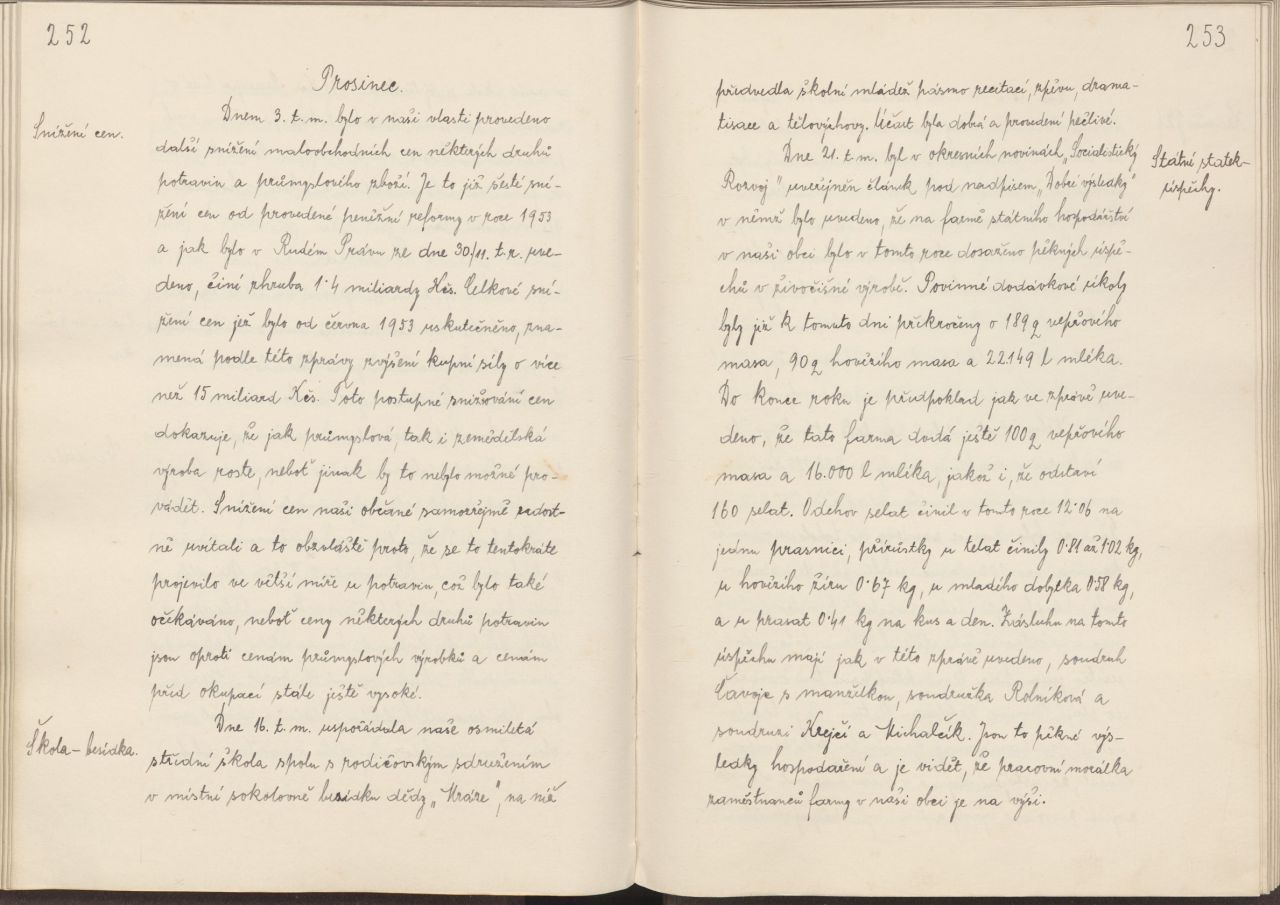 252
Prosinec.
Snížení cen.
Dnem 3. t. m. bylo v naši vlasti provedeno
další snížení maloobchodních cen některých druhů
potravin a průmyslového zboží. Je to již šesté sní-
žení cen od provedené peněžní reformy v roce 1953
a jak bylo v Rudém Právu ze dne 30/11. t. r. uve-
deno, činí zhruba 1·4 miliardy Kčs. Celkové sní-
žení cen jež bylo od června 1953 uskutečněno, zna-
mená podle této zprávy zvýšení kupní síly o více
než 15 miliard Kčs. Toto postupné snižování cen
dokazuje, že jak průmyslová, tak i zemědělská
výroba roste, neboť jinak by to nebylo možné pro-
vádět. Snížení cen naši občané samozřejmě radost-
ně uvítali a to obzvláště proto, že se to tentokráte
projevilo ve větší míře u potravin, což bylo také
očekáváno, neboť ceny některých druhů potravin
jsou oproti cenám průmyslových výrobků a cenám
před okupací stále ještě vysoké.
Škola - besídka.
Dne 16. t. m. uspořádala naše osmiletá
střední škola spolu s rodičovským sdružením
v místní sokolovně besídku dědy „Mráze", na níž
253
předvedla školní mládež pásmo recitací, zpěvu, drama-
tisace a tělovýchovy. Účast byla dobrá a provedení pečlivé.
Státní statek -
úspěchy.
Dne 21. t. m. byl v okresních novinách „Socialistický
Rozvoj" uveřejněn článek pod nadpisem „Dobré výsledky"
v němž bylo uvedeno, že na farmě státního hospodářství
v naši obci bylo v tomto roce dosaženo pěkných úspě-
chů v živočišné výrobě. Povinné dodávkové úkoly
byly již k tomuto dni překročeny o 189 q vepřového
masa, 90 q hovězího masa a 22.149 l mléka.
Do konce roku je předpoklad jak ve zprávě uve-
deno, že tato farma dodá ještě 100 q vepřového
masa a 16.000 l mléka, jakož i, že odstaví
160 selat. Odchov selat činil v tomto roce 12·06 na
jednu prasnici, přírůstky u telat činily 0·81 až 1·02 kg,
u hovězího žíru 0·67 kg, u mladého dobytka 0·58 kg,
a u prasat 0·41 kg na kus a den. Zásluhu na tomto
úspěchu mají jak v této zprávě uvedeno, soudruh
Čavoje s manželkou, soudružka Rolníková a
soudruzi Krejčí a Michalčík. Jsou to pěkné výs-
ledky hospodaření a je vidět, že pracovní morálka
zaměstnanců farmy v naši obci je na výši.